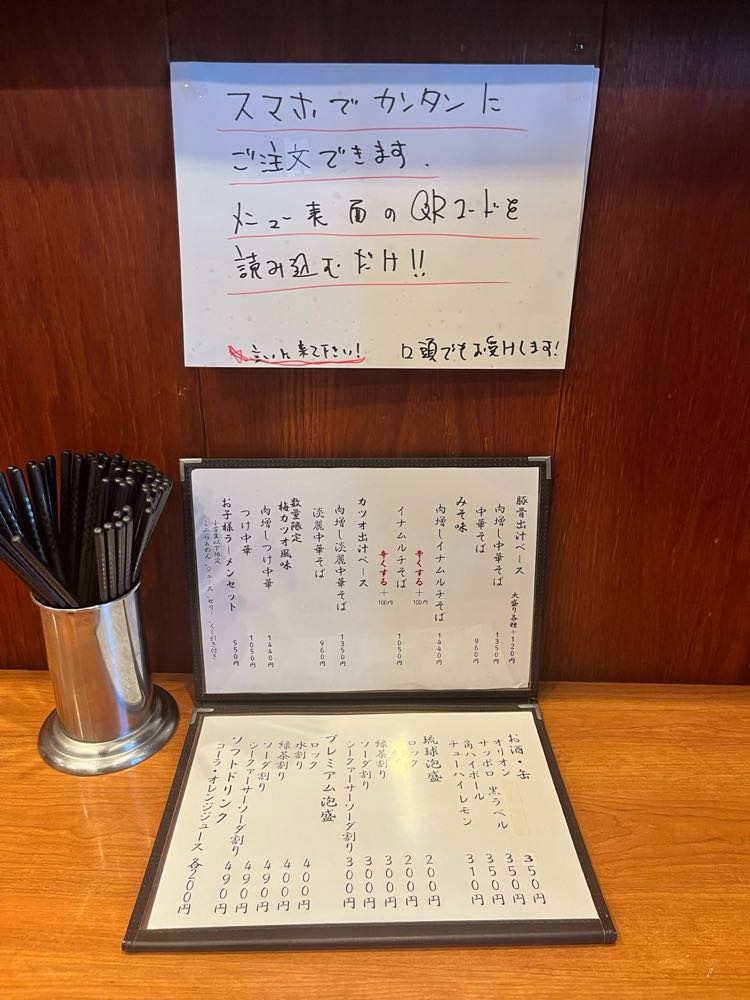 スマホでカンタンに
ご注文できます.
メニュー表面のQRコードを
読み込むだけ!!
言いに来て下さい!
口頭でもお受けします!
豚骨出汁ベース
大盛り各種+120円
肉増し中華そば 1350円
中華そば 960円
みそ味
肉増しイナムルチそば 1440円
辛くする+100円
イナムルチそば 1050円
辛くする+100円
カツオ出汁ベース
肉増し淡麗中華そば 1350円
淡麗中華そば 960円
数量限定
梅カツオ風味
肉増しつけ中華 1440円
つけ中華 1050円
お子様ラーメンセット 550円
小学生以下限定
ミニらぁめん ジュース ゼリー くじ引き付き
お酒・缶
オリオン 350円
サッポロ 黒ラベル 350円
角ハイボール 350円
チューハイレモン 310円
琉球泡盛
ロック 200円
水割り 200円
緑茶割り 300円
ソーダ割り 300円
シークァーサーソーダ割り 300円
プレミアム泡盛
ロック 400円
水割り 400円
緑茶割り 490円
ソーダ割り 490円
シークァーサーソーダ割り 490円
ソフトドリンク
コーラ・オレンジジュース 各200円